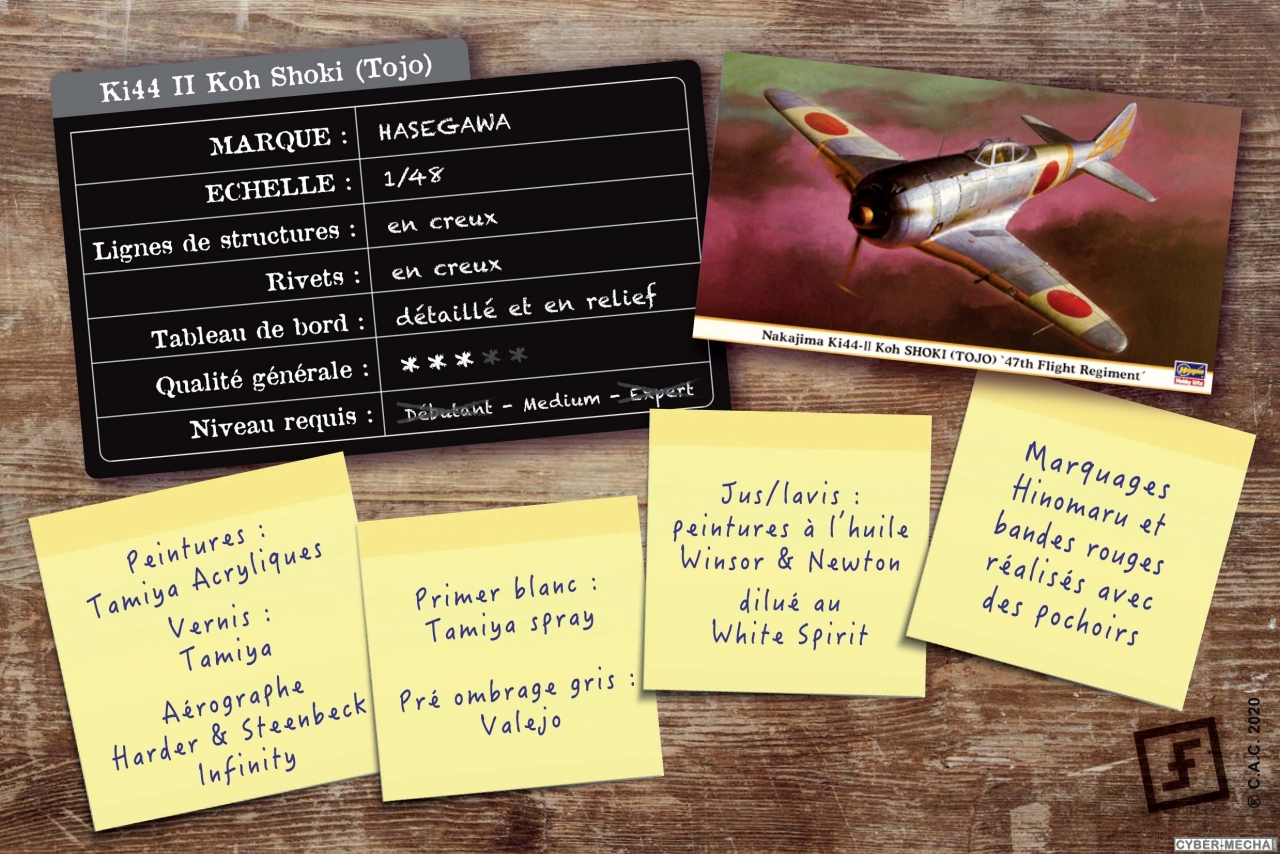 Ki44 II Koh Shoki (Tojo)
MARQUE : HASEGAWA
ECHELLE : 1/48
Lignes de structures : en creux
Rivets : en creux
Tableau de bord : détaillé et en relief
Qualité générale : * * * * *
Niveau requis : Débutant - Medium - Expert
Nakajima Ki44-II Koh SHOKI (TOJO) `47th Flight Regiment´
Hasegawa
Hobby kits
Peintures :
Tamiya Acryliques
Vernis :
Tamiya
Aérographe
Harder & Steenbeck
Infinity
Primer blanc :
Tamiya spray
Pré ombrage gris :
Valejo
Jus/lavis :
peintures à l'huile
Winsor & Newton
dilué au
White Spirit
Marquages
Hinomaru et
bandes rouges
réalisés avec
des pochoirs
® C.A.C 2020
CYBER-MECHA